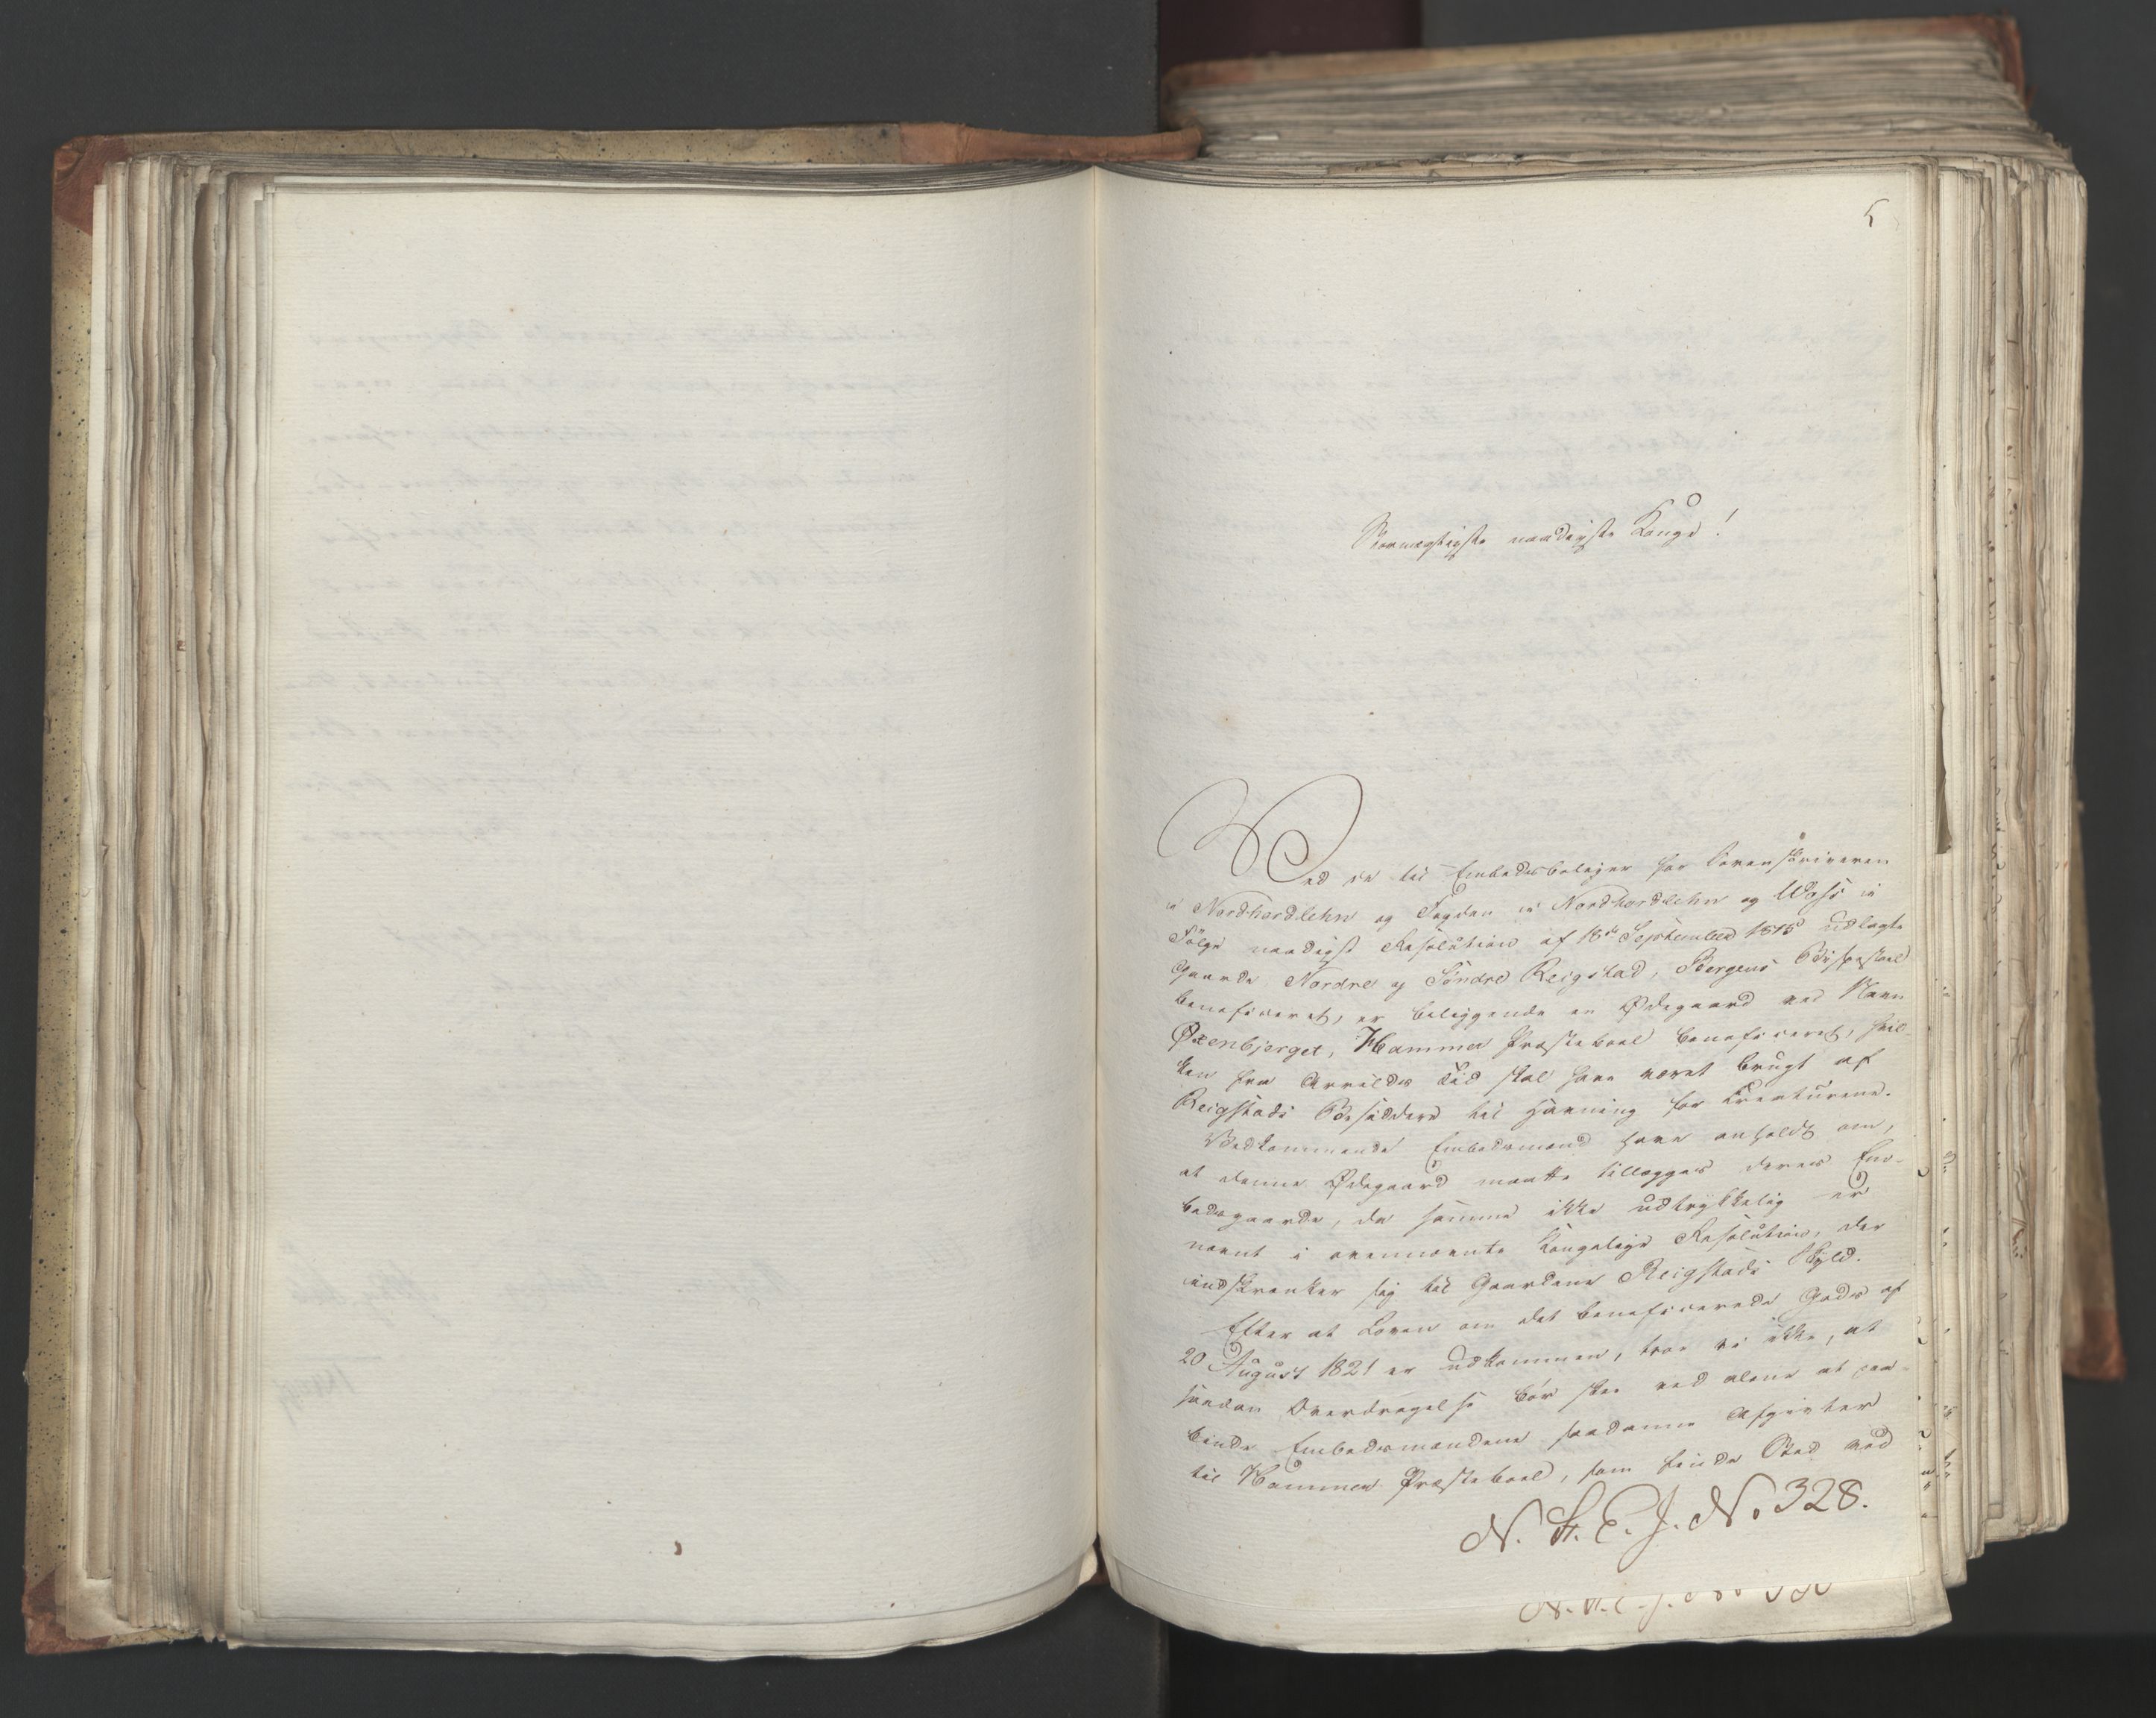 5
Stormægtigste naadigste Konge!
Ved de til Embedsboliger for Sorenskriveren
i Nordhordlehn og Fogden i Nordhordlehn og Woss i
Følge naadigst Resolution af 18de September 1815 udlagte
Gaarde Nordre og Søndre Reigstad, Bergens Bispestoel
beneficeret, er beliggende en Ødegaard ved Navn
Øxenbjerget, Hammer Præsteboel beneficeret, hvil-
ken fra Arrilds Tid skal have været brugt af
Reigstads Besiddere til Havning for Creaturene.
Vedkommende Embedsmænd have anholdt om,
at denne Ødegaard maatte tillægges deres Em-
bedsgaarde, da samme ikke udtrykkelig er
nævnt i ovennævnte Kongelige Resolution, der
indskrænker sig til Gaardene Reigstads Skyld.
Efter at Loven om det beneficerede Gods af
20 August 1821 er udkommen, troe vi ikke, at
saadan Overdragelse bør skee ved alene at paa-
binde Embedsmændene saadanne Afgivter
til Hammer Præsteboel, som finde Sted ved
N. St. E. J. No 328.